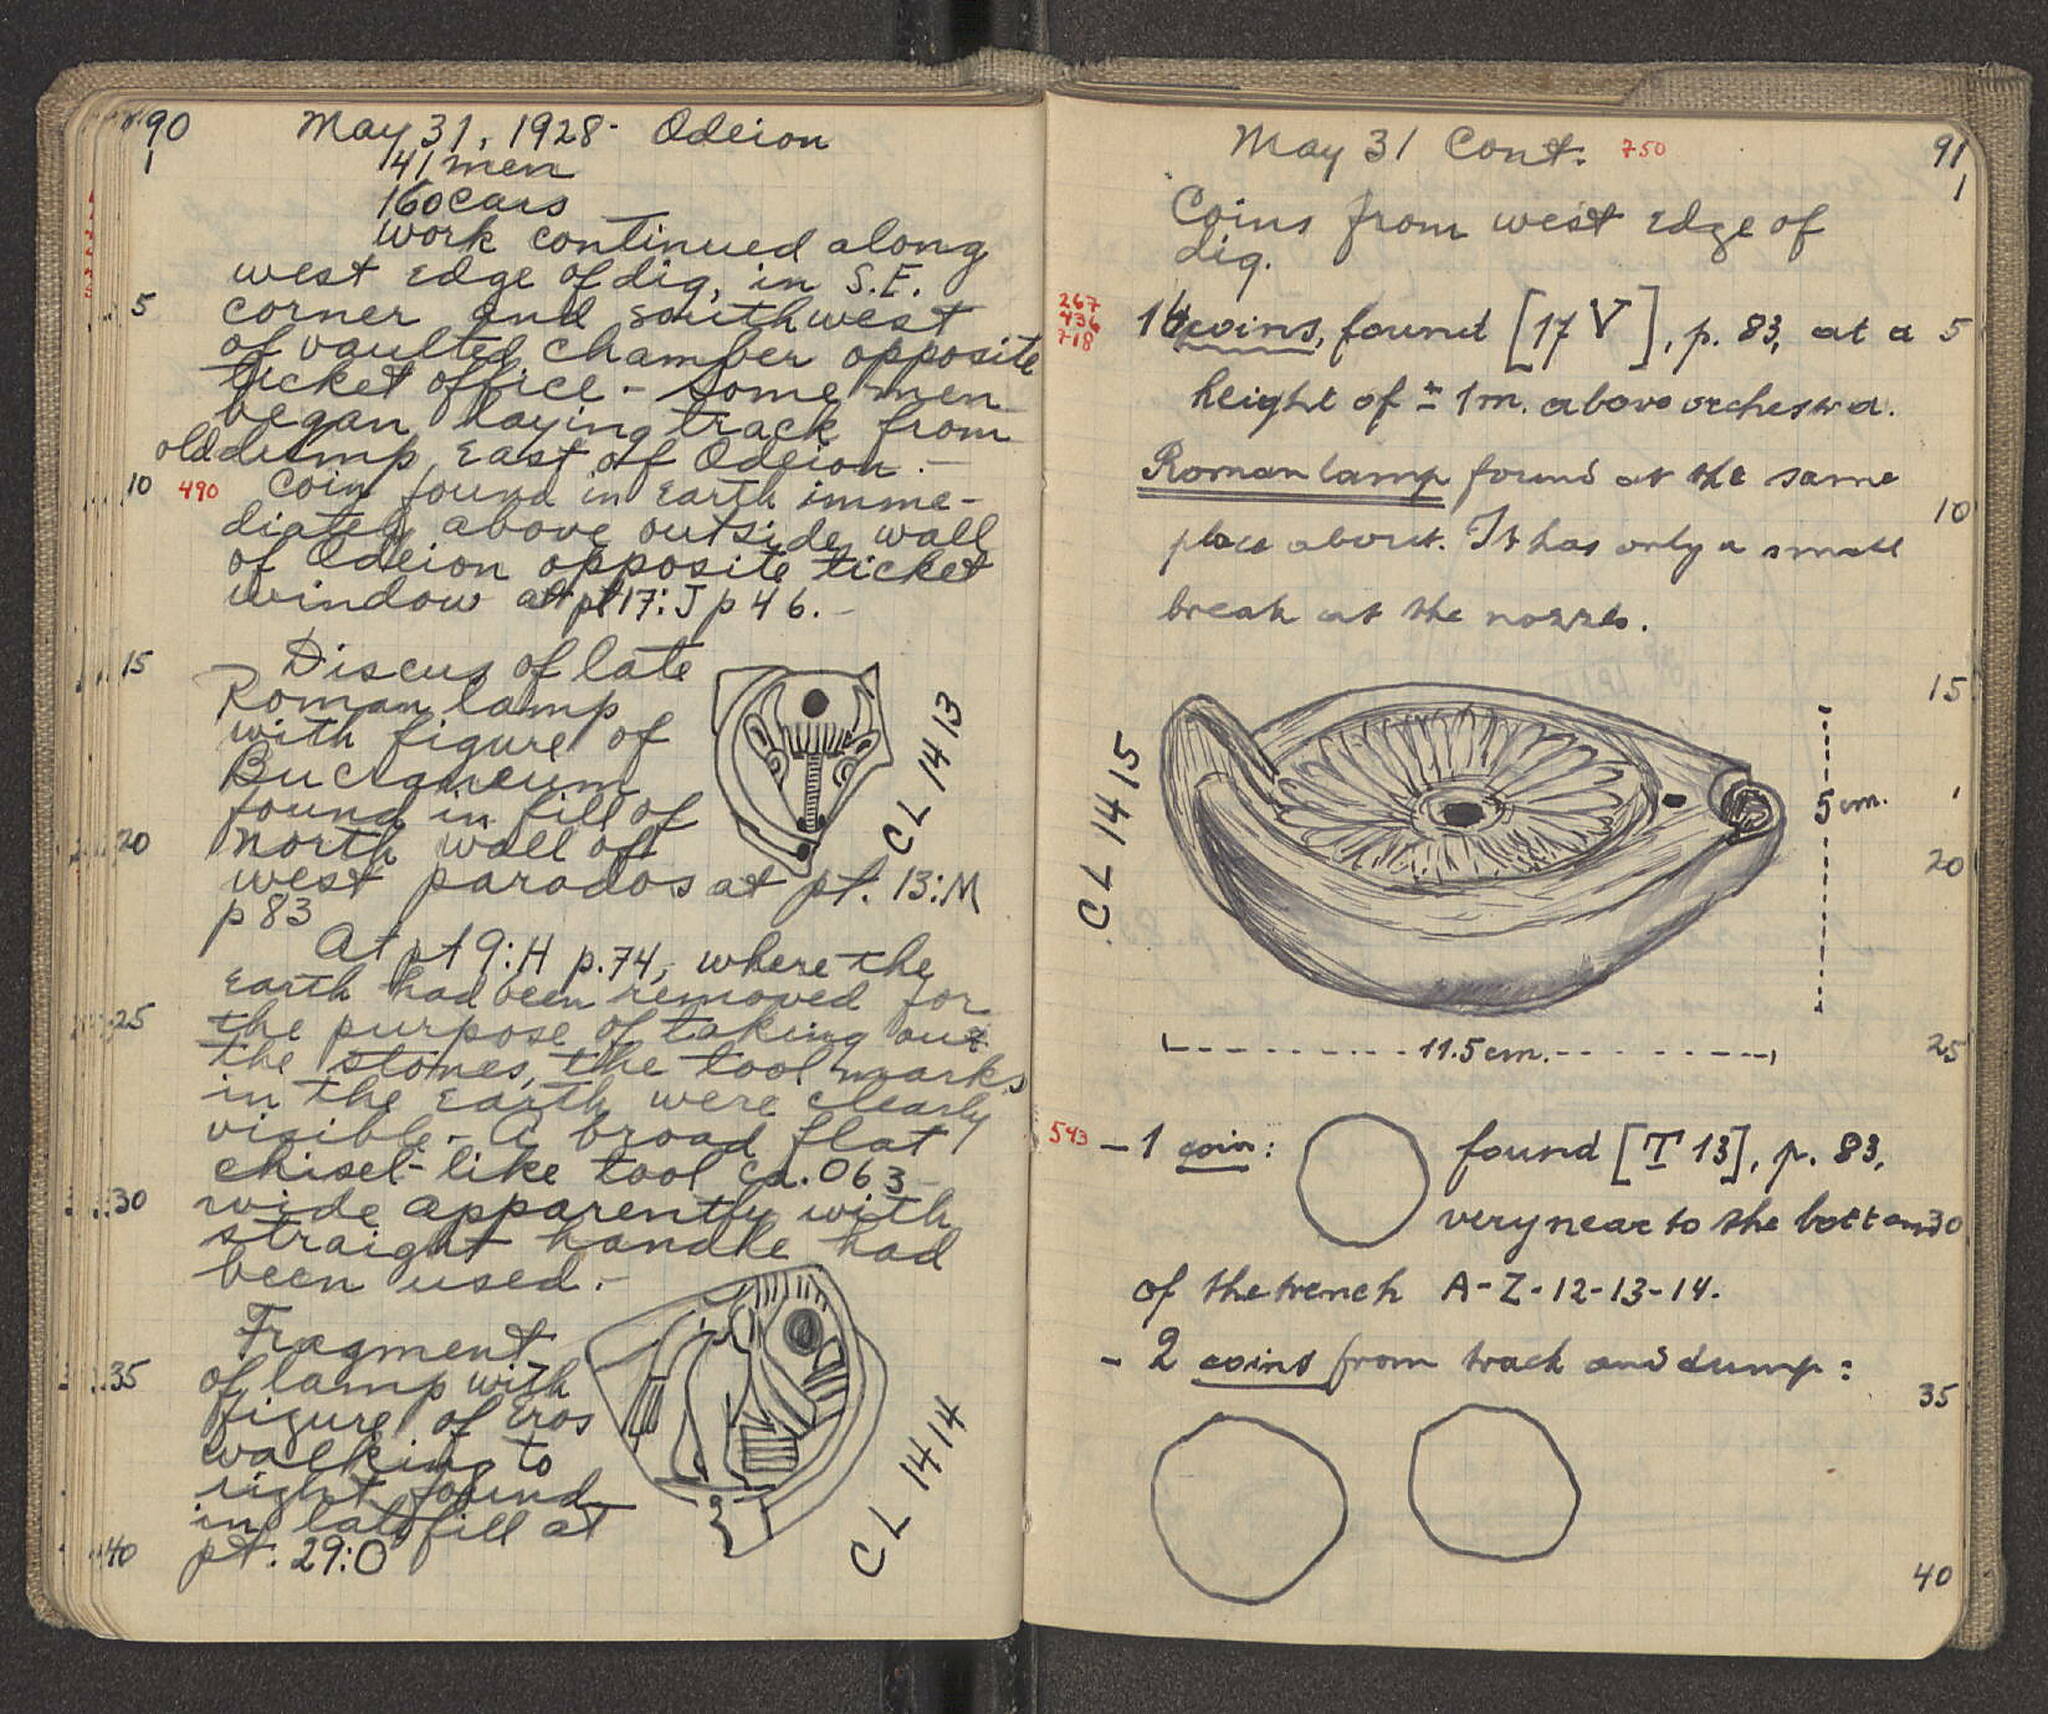 90 May 31, 1928 - Odeion
1 141 men
160 cars
work continued along
west edge of dig, in S.E.
5 corner and southwest
of vaulted chamber opposite
ticket office - some men
began laying track from
old dump East of Odeion. -
10 490 Coin found in Earth imme-
diately above outside wall
of Odeion opposite ticket
window at pt 17:J p 46. -
15 Discus of late
Roman lamp
with figure of
Bucraneum
found in fill of
20 north wall of
west parados at pt. 13:M
p 83
CL 1413
At pt 9:H p.74, where the
Earth had been removed for
25 the purpose of taking out
the stones, the tool marks
in the Earth were clearly
visible - A broad flat
chisel-like tool ca. 063
30 wide apparently with
straight handle had
been used. -
Fragment
35 of lamp with
figure of Eros
walking to
right found
in late fill at
40 pt. 29:O
CL 1414
May 31 Cont. 750 91
1
Coins from west Edge of
dig.
267
436
718
14 coins, found [17 V], p. 83, at a 5
height of ± 1m. above orchestra.
Roman lamp found at the same
10
place about. It has only a small
break at the nozzle.
15
CL 1415
5 cm.
20
11.5 cm. 25
543 - 1 coin: found [T 13], p. 83,
very near to the bottom 30
of the trench A-Z-12-13-14.
- 2 coins from track and dump:
35
40